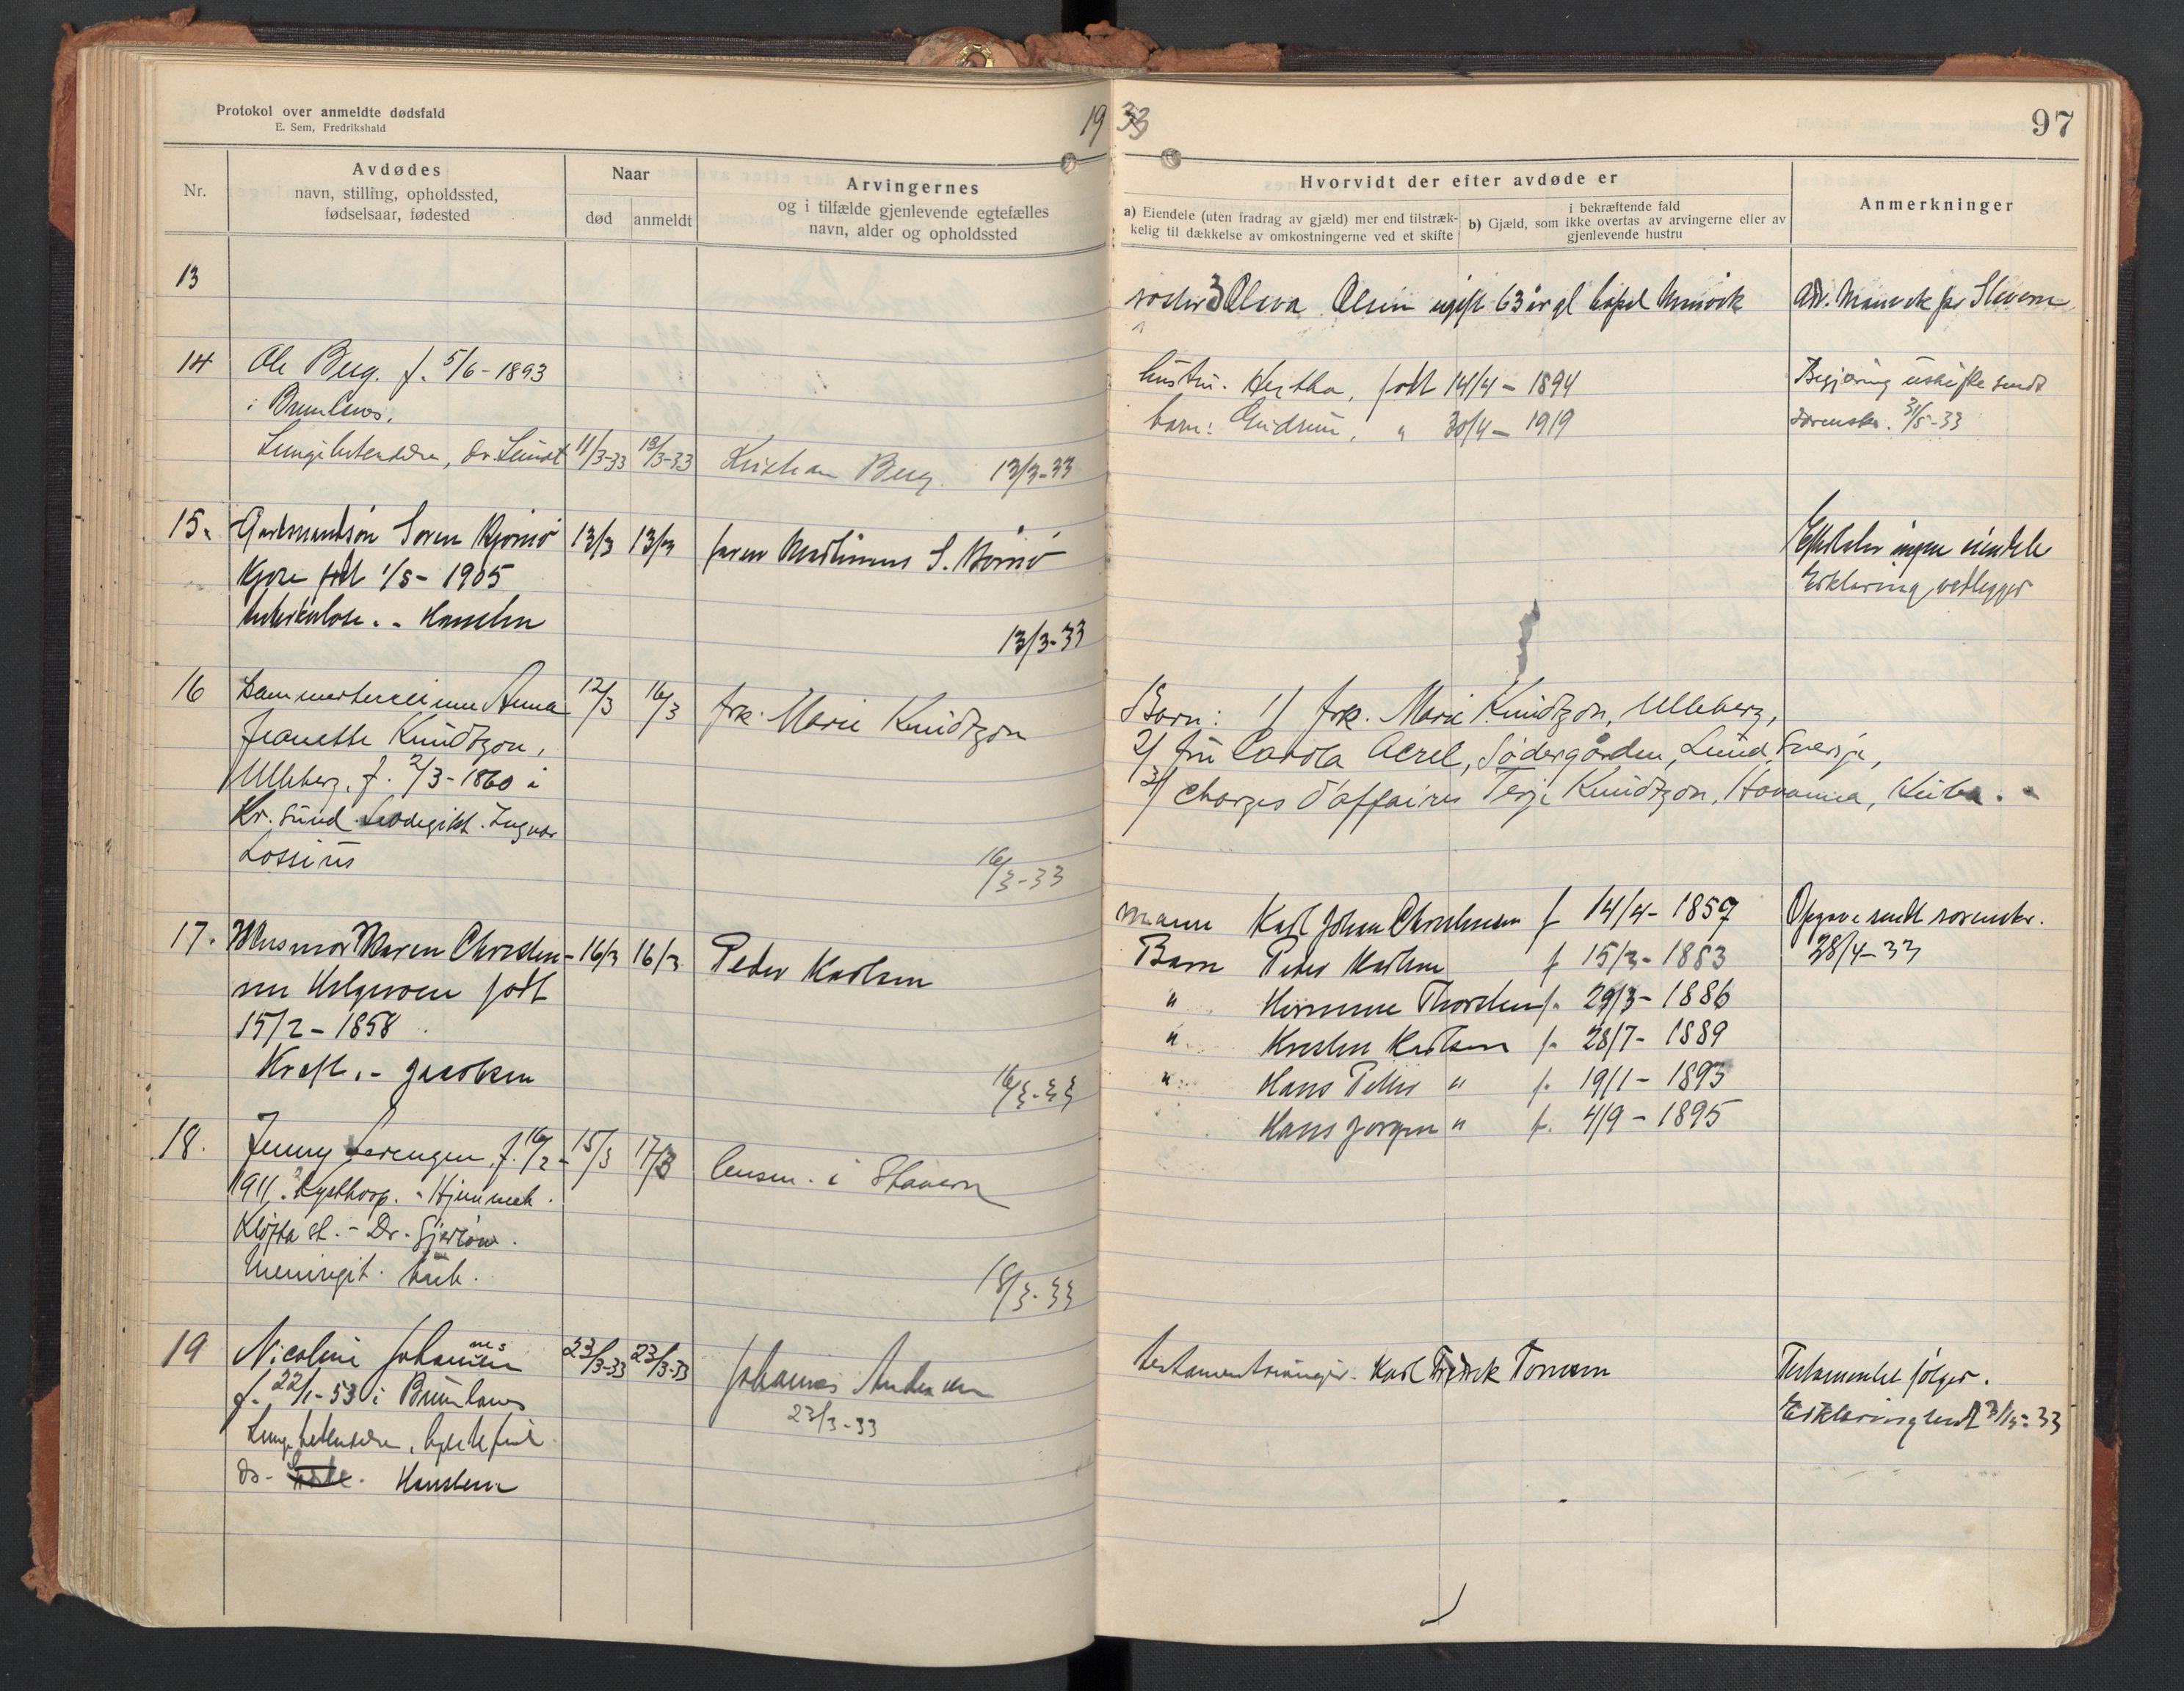 Protokol over anmeldte dødsfald
E. Sem, Fredrikshald
19 33
97
Nr.
Avdødes
navn, stilling, opholdssted,
fødselsaar, fødested
Naar
død
anmeldt
Arvingernes
og i tilfælde gjenlevende egtefælles
navn, alder og opholdssted
Hvorvidt der efter avdøde er
a) Eiendele (uten fradrag av gjæld) mer end tilstræk-
kelig til dækkelse av omkostningerne ved et skifte
i bekræftende fald
b) Gjæld, som ikke overtas av arvingerne eller av
gjenlevende hustru
Anmerkninger
13
søster 3 Olava Olsen ugift 63 år gl
14
Ole Berg. f. 5/6-1893
i Brunlanes.
Lungebetendelse, dr. Lundt
11/3-33
13/3-33
Kristian Berg. 13/3-33
hustru. Hertha, født 14/4-1894
barn: Gudrun, " 30/4-1919
Begjæring uskifte sendt
sorenskr. 31/5-33
15.
Gårdmandsøn Søren
født 1/5-1905
tuberkulose. -
13/3
13/3
faren
13/3-33
ingen eiendele
Erklæring vedlegger
16
Kammerherreinne Anna
Jeanette Knudtzon,
Ulleberg, f. 2/3-1860 i
Kr.sund. Ingvar
Lossius
12/3
16/3
frk. Marie Knudtzon
16/3-33
Barn: 1/ frk. Marie Knudtzon, Ulleberg,
2/ fru Carola Acrel, Södergården, Lund, Sverje,
3/ charges d'affaires Terje Knudtzon, Havanna, Kuba.
17.
Husmor Maren Christen-
sen Helgeroen født
15/2-1858
Kreft. - Jacobsen
16/3
16/3
Peder Karlsen
16/3-33
Mann Karl Johan Christensen f 14/4-1859
Barn Peder Karlsen f 15/3-1883
" Thorsten f. 29/3-1886
" Kristen Karlsen f. 28/7-1889
" Hans Petter " f. 19/1-1893
Hans Jørgen " f. 4/9-1895
Opgave sendt sorenskr.
28/4-33
18.
Jenny f. 16/2-
1911. Kysthosp. -
Kløfta st. - Dr.
Meningit. tub.
15/3
17/3
lensm. i Stavern
18/3-33
19
Nicoline Johannes
f. 22/1-53 i Brunlanes
Lungebetendelse,
dr.
23/3-33
23/3-33
Johannes Andersen
23/3-33
testamentsarving. Karl Fredrik
Testamentet følger.
Erklæring sendt 31/5-33